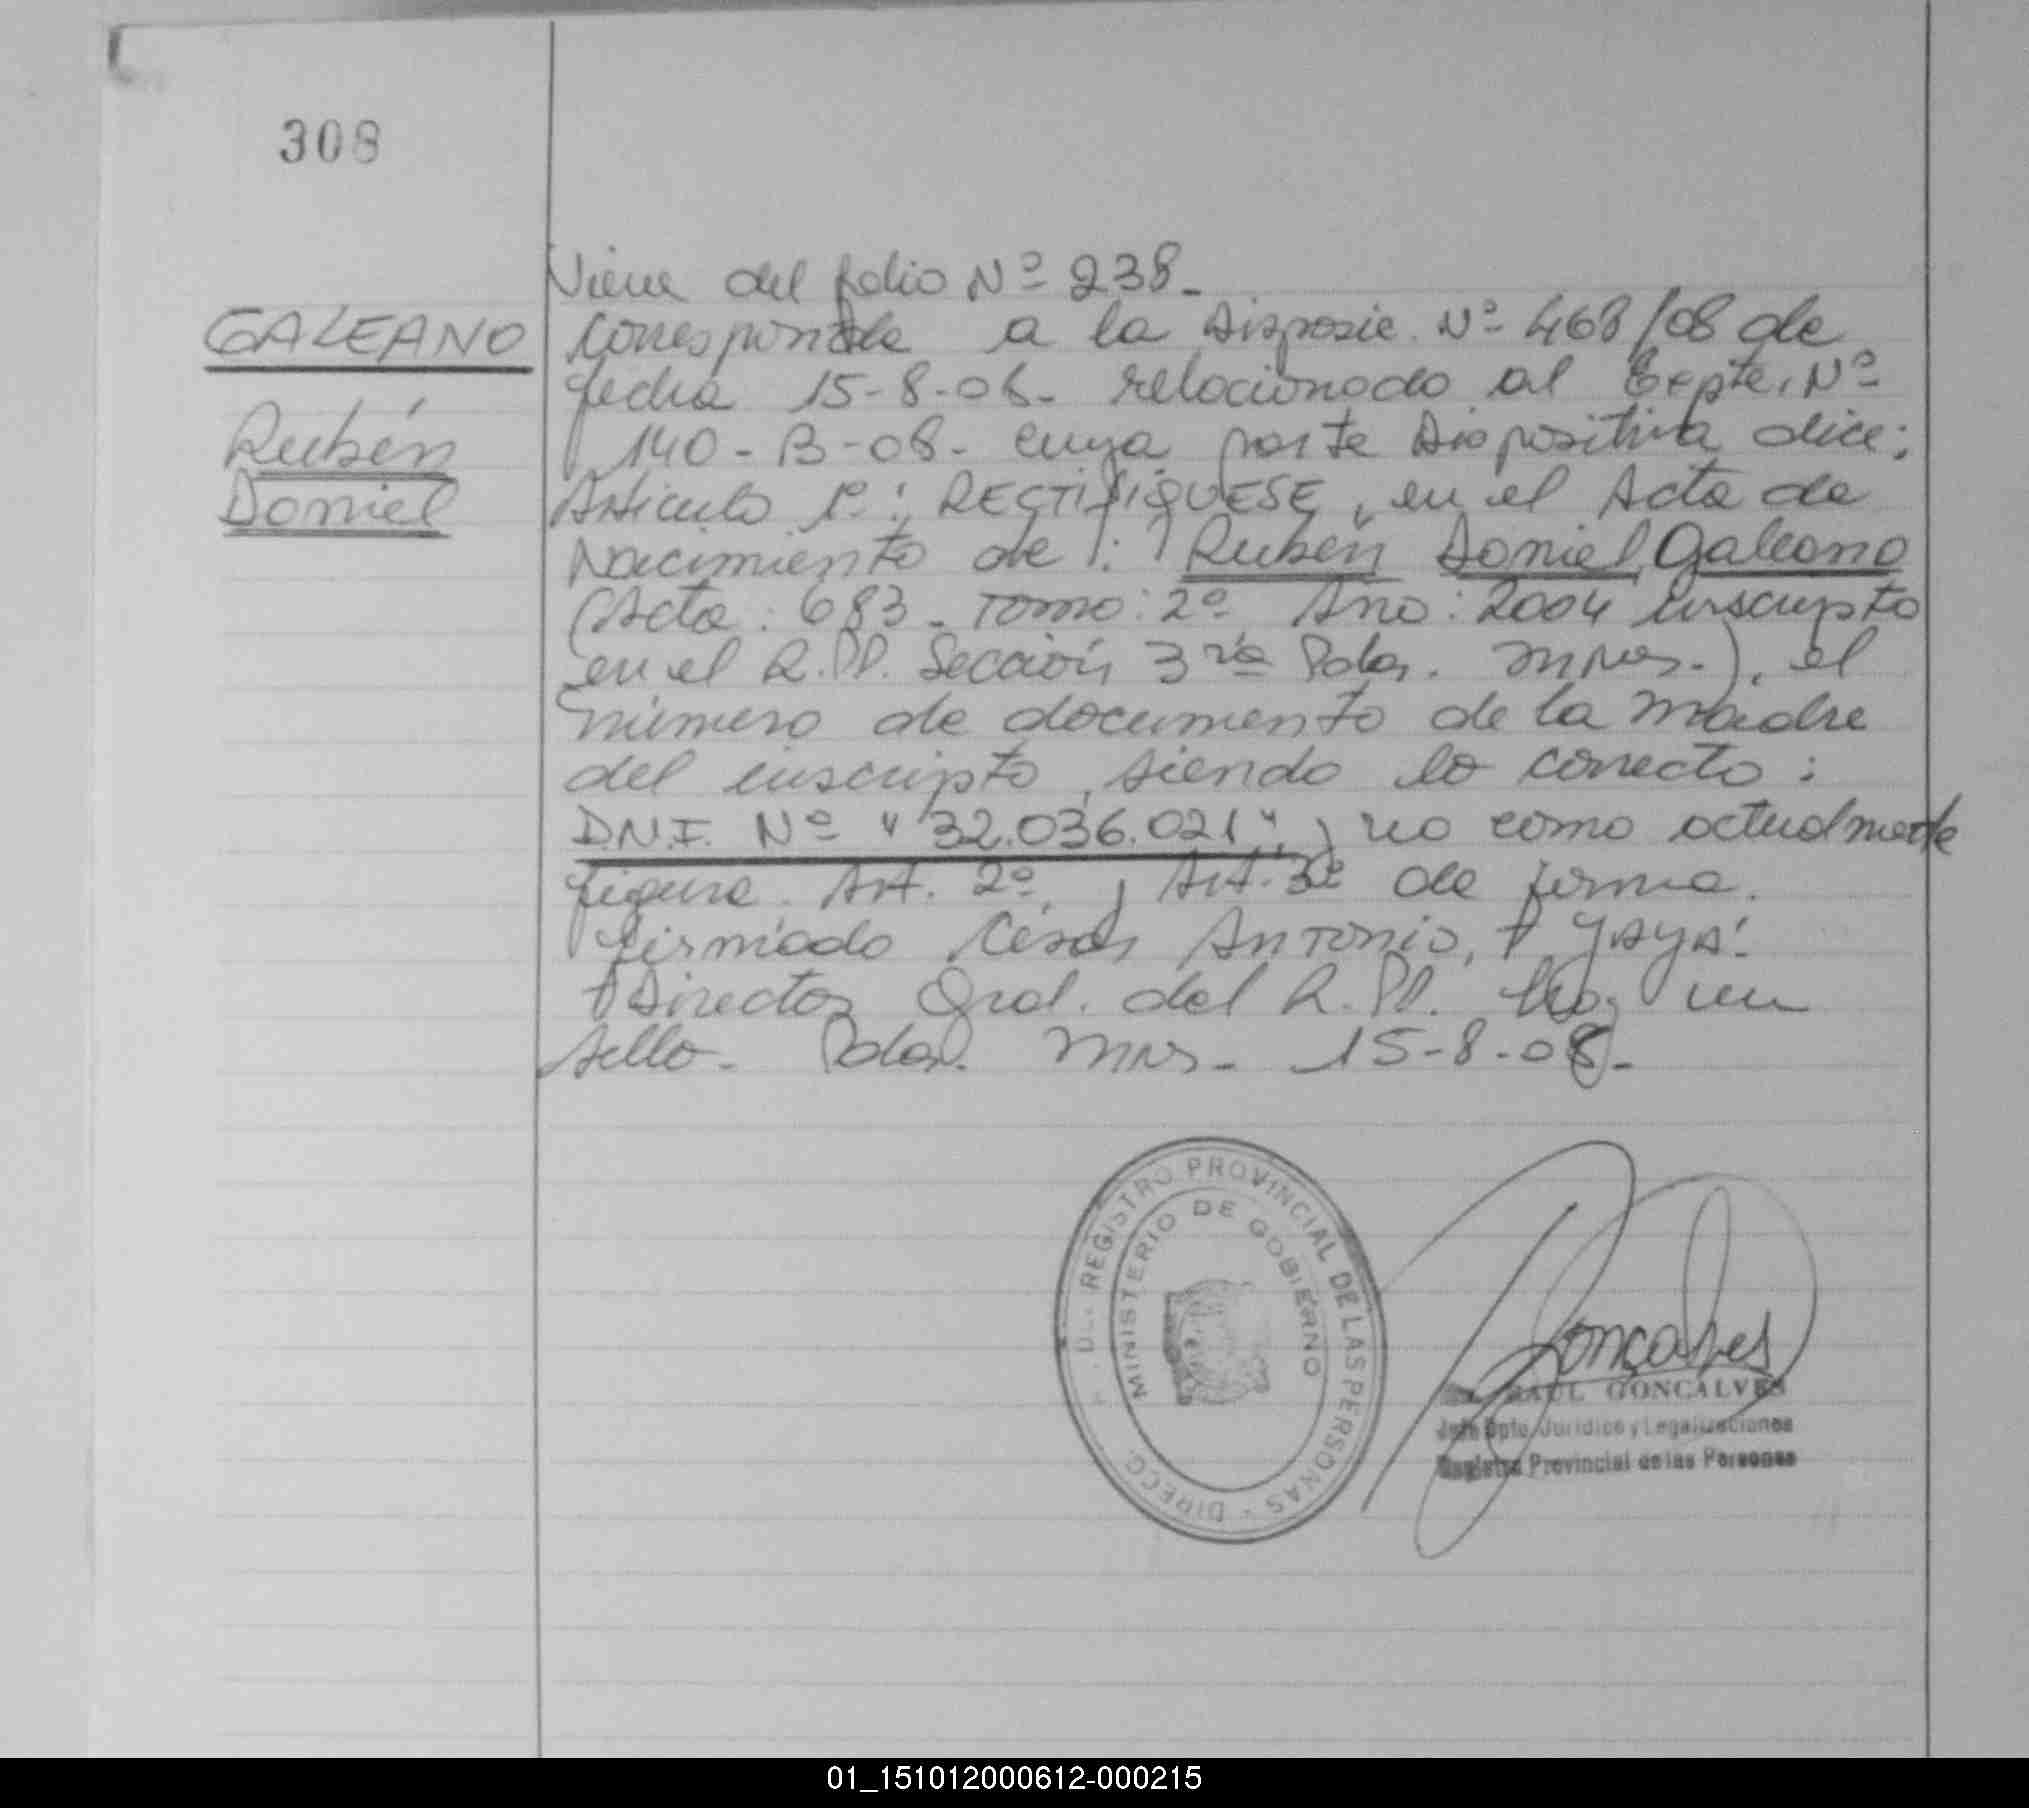 308
Viene del folio Nº 238-
GALEANO
Corresponde a la Disposic. Nº 468/08 de
fecha 15-8-08- relacionado al Expte. Nº
Rubén
140-B-08- cuya parte Dispositiva dice:
Daniel
Articulo 1º: RECTIFIQUESE, en el Acta de
Nacimiento de: Rubén Daniel Galeano
(Acta: 683- Tomo: 2º Año: 2004 inscripto
en el R.PP. Sección 3ra Pdas. Mnes.), el
número de documento de la madre
del inscripto, siendo lo correcto:
D.N.I. Nº "32.036.021", y no como actualmente
figura. Art. 2º, y Art. 3º de forma.
firmado César Antonio, YAYA!
Director Gral. del R.PP. Hay un
sello- Pdas. Mns- 15-8-08-
REGISTRO PROVINCIAL DE LAS PERSONAS - DIRECC.
MINISTERIO DE GOBIERNO
Goncalves
RAUL GONCALVES
Jefe Dpto. Jurídico y Legalizaciones
Registro Provincial de las Personas
01_151012000612-000215